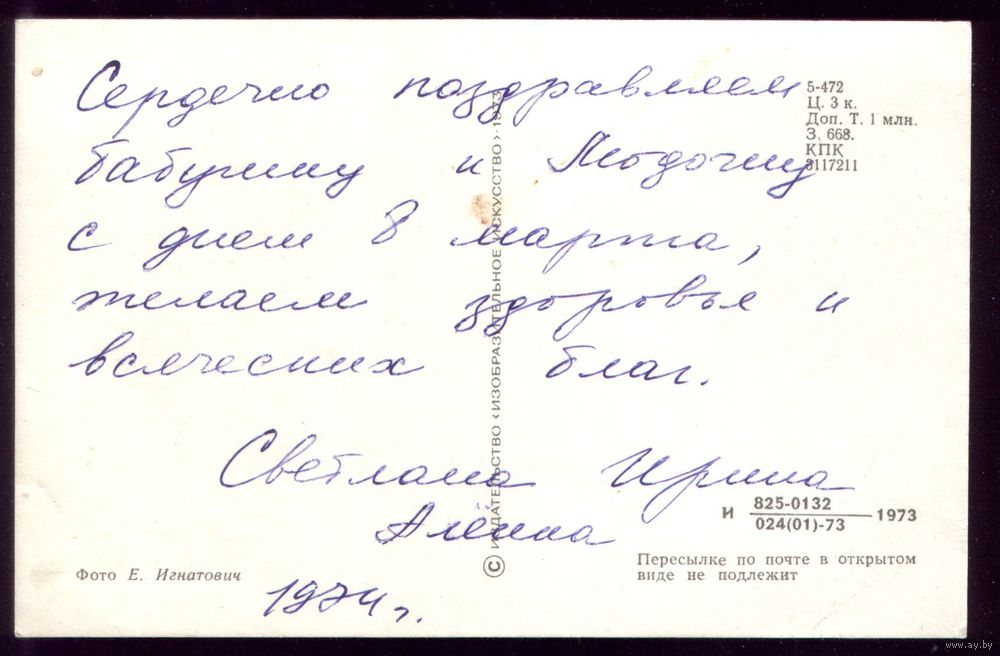 Сердечно поздравляем
бабушку и Людочку
с днем 8 марта,
желаем здоровья и
всяческих благ.
Светлана Ирина
Алёна
1974 г.
5-472
Ц. 3 к.
Доп. Т. 1 млн.
З. 668.
КПК
3117211
© ИЗДАТЕЛЬСТВО «ИЗОБРАЗИТЕЛЬНОЕ ИСКУССТВО» 1973
И 825-0132
024(01)-73 1973
Фото Е. Игнатович
Пересылке по почте в открытом
виде не подлежит
www.ay.by